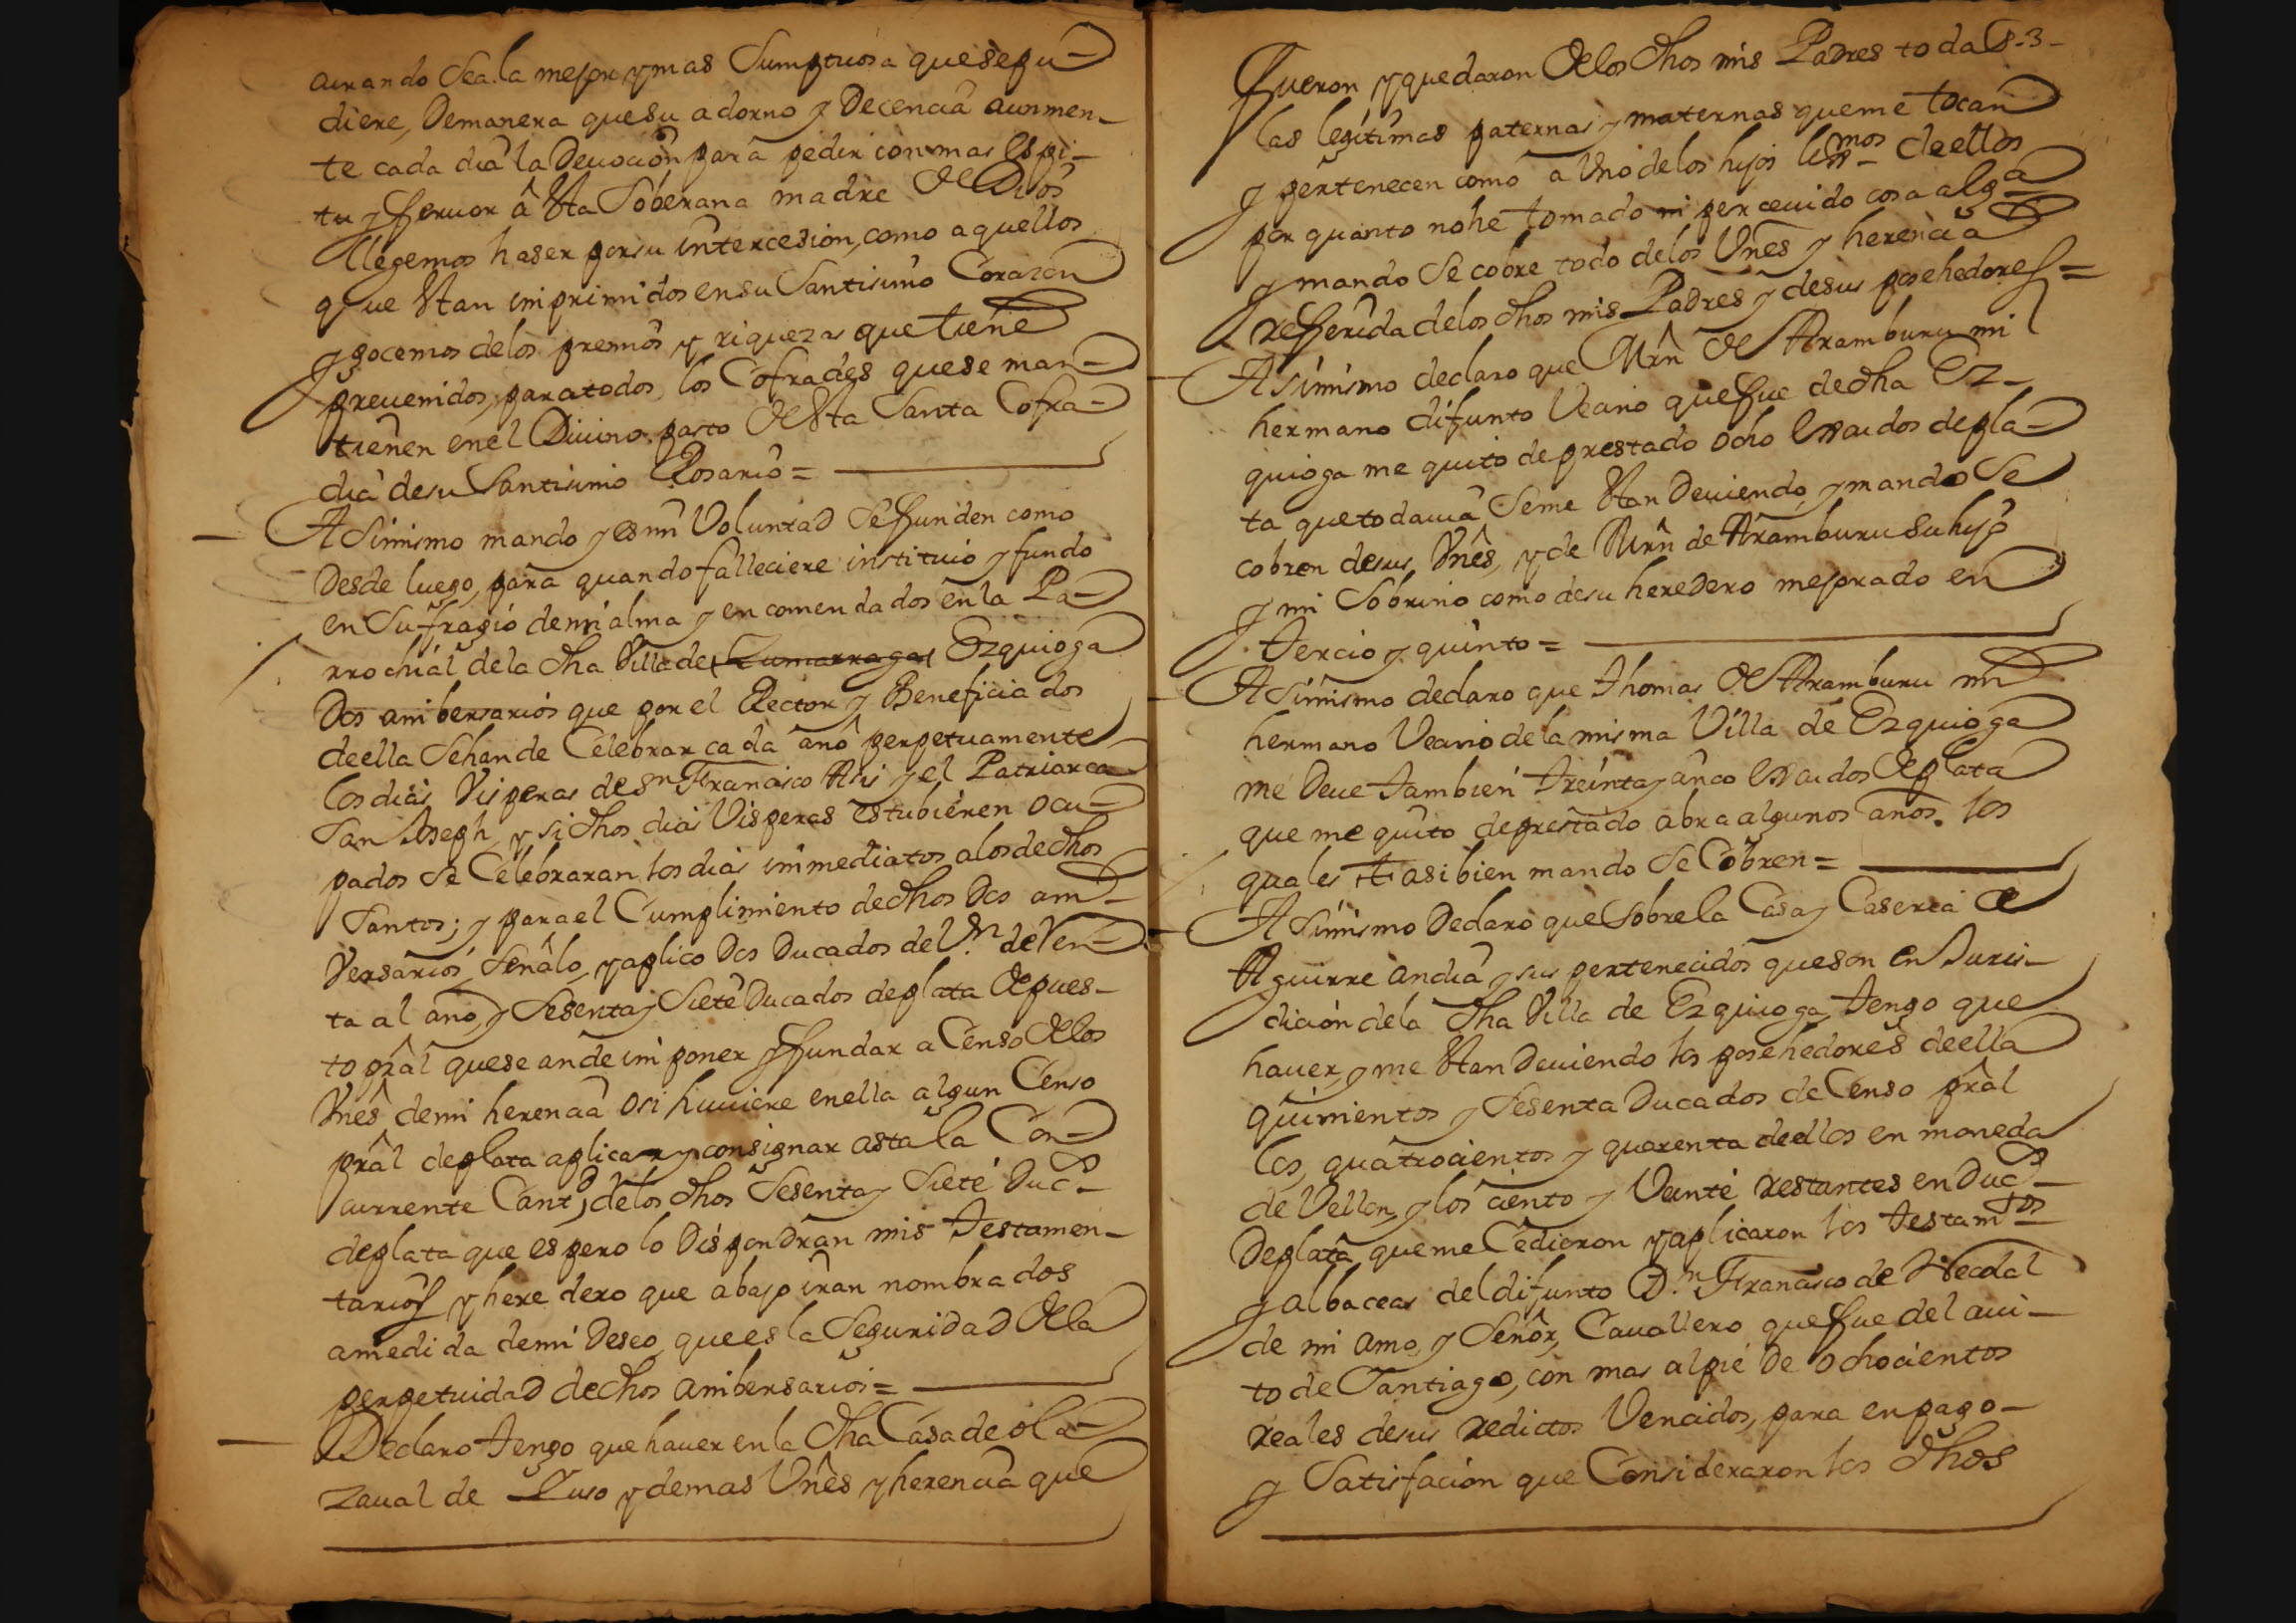 curando sea la mejor y mas Sumptuosa que se pu-
diere, Demanera que su adorno y Decencia aunmen-
te cada dia la Devoción para pedir con mas Espi-
tu y fervor â Esta Soberana madre de Dios
llegemos haser por su intercesion, como aquellos
que Estan imprimidos en su Santisimo Corazon
y gocemos de los premios y riquezas que tiene
prevenidos, para todos los Cofrades que se man-
tienen en el Divino pasto de Esta Santa Cofra-
dia de su Santisimo Rosario =
Asimismo mando y es mi Voluntad se funden como
Desde luego, para quando falleciere instituio y fundo
en Sufragio de mi alma y encomendados en la Pa-
rrochial de la dha Villa de Zumarraga Ezquioga
Dos anibersarios que por el Rector y Beneficiados
de ella se han de Celebrar cada año perpetuamente
los dias Visperas de Sn Francisco Asis y el Patriarca
San Joseph, y si dhos dias Visperas estubieren ocu-
pados se Celebraran los dias immediatos a los de dhos
Santos; y para el Cumplimiento de dhos Dos ani-
Versarios, señalo, y aplico Dos Ducados de Vn. de Ren-
ta al año, y Sesenta y Siete Ducados de plata de pues-
to pral que se an de imponer y fundar a Censo de los
Vnês de mi herencia O si huviere en ella algun Censo
prâl de plata aplicar y consignar asta la Con-
currente Cantd de los dhos Sesenta y Siete Ducs
de plata que espero lo Dispondran mis Testamen-
tarios, y heredero que abajo iran nombrados
a medida de mi Deseo, que es la Seguridad de la
perpetuidad de dhos anibersarios =
Declaro tengo que haver en la dha Casa de ola-
zaval de Suso y demas Vnês y herencia que
8-3-
Fueron y quedaron de los dhos mis Padres todas
las legitimas paternas y maternas que me tocan
y pertenecen como a Uno de los hijos lexmos de ellos
por quanto no he tomado ni percevido cosa alga
y mando se cobre todo de los Vnês y herencia
refferida de los dhos mis Padres y de sus posehedores =
Asimismo declaro que Mrn de Aramburu mi
hermano difunto Vecino que fue de dha Ez-
quioga me quito de prestado ocho Escudos de pla-
ta que todavia Se me Estan Deviendo, y mando Se
cobren de sus Vnês, y de Mrn de Aramburu su hijo
y mi Sobrino como de su heredero mejorado en
Tercio y quinto =
Asimismo declaro que Thomas de Aramburu mi
hermano Vecino de la misma Villa de Ezquioga
me Deve tambien treinta y cinco Escudos de plata
que me quito de prestado abra algunos años. los
quales asi bien mando se Cobren =
Asimismo Declaro que Sobre la Casa y Caseria de
Aguirre andia y sus pertenecidos que son en Juris-
dicion de la dha Villa de Ezquioga, tengo que
haver, y me Estan Deviendo los posehedores de ella
quinientos y Sesenta Ducados de Censo prâl
los, quatrocientos y quarenta de ellos en moneda
de Vellon, y los ciento y Veinte restantes en Ducs
De plata que me Cedieron y aplicaron los testamtos
y albaceas del difunto Dn. Francisco de Necolal
de mi amo, y Señor, Cavallero que fue del avi-
to de Santiago, con mas al pie de ochocientos
reales de sus redictos Vencidos, para en pago-
y Satisfacion que Consideraron los dhos